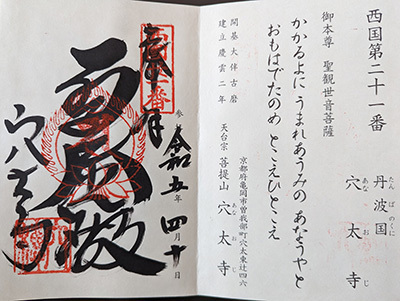 西国第二十一番
丹波国
たんばのくに
穴太寺
あなおじ
御本尊 聖観世音菩薩
かかるよに うまれあうみの あなうやと
おもはでたのめ とこえひとこえ
開基大伴古磨
建立慶雲二年
天台宗 菩提山 穴太寺
あなおじ
京都府亀岡市曽我部町穴太東辻四六
奉拝
令和五年 四月十日
穴太寺